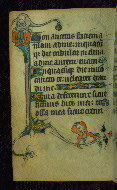 Non auertas faciem t
uam a me: in quacūq
que die tribulor incli
na ad me aurem tuam
In quacūque die inuo
cauero te uelociter exau
di me
Quia defecerunt sicut
fumus dies mei: et
ossa mea sicut cremi